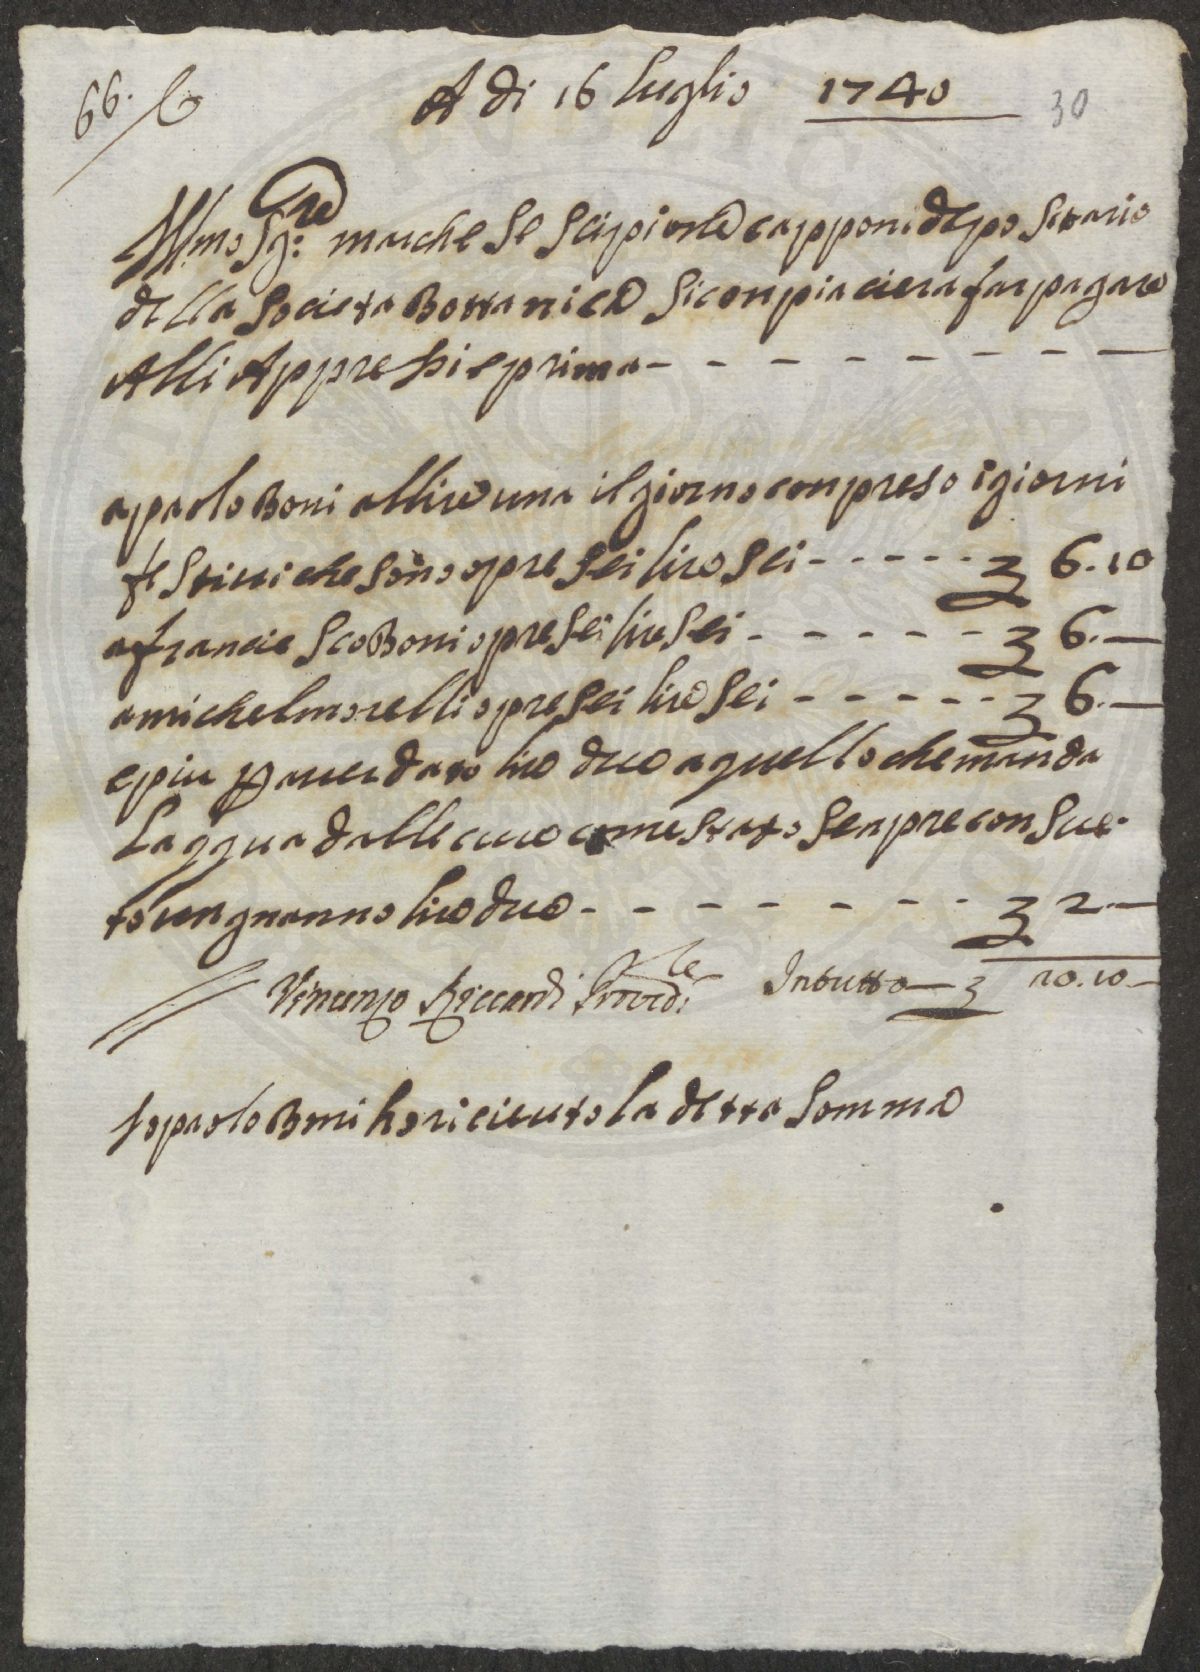 66.
A di 16 luglio 1740
30
Illmo Sig:re marchese Scipione capponi depositario
della Societa Bottanica si conpiaciera far pagare
Alli Appressi e prima
a paolo Boni a llire una il giorno conpreso i giorni
festiui che sono opre sei lire sei 6.10
a francie sco Boni opre sei lire sei 6.—
a michel morelli opre sei lire sei 6.—
e piu p auer dato lire due a quello che manda
Laqqua dalle caue come stato senpre consue
to ongnanno lire due 2.—
Vincenzo Riccardi Provedre In tutto 20.10—
Io paolo Boni ho riceuuto la detta Somma